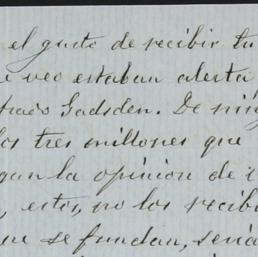 el gusto de recibir tu
veo estaban alerta
Gadsden. De nin
los tres millones que
gan la opinion de
, estos, no los recib
se fundan, seria